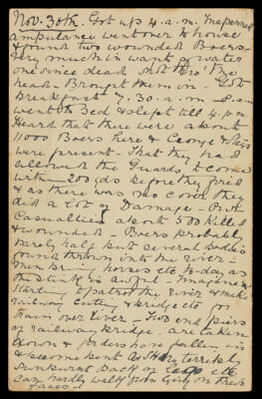 Nov. 30th Got up 4 a.m. Inspanned
ambulance went over to house
& found two wounded Boers
Very much in want of water
one since dead shot thro' the
head. Brought them in - Got
breakfast 7.30 a.m.
went to Bed & slept till 4 p.m.
Heard that there were about
11000 Boers here & Cronje &
were present - That they had
allowed the Guards to come
within 200 yds before they fired
& as there was no cover they
did a lot of Damage - Our
Casualties about 500 Killed
& wounded - Boers probably
barely half but several bodies
found thrown into the river -
horses etc to-day as
the stink is awful -
start up the river & make
railway &c for
train over River - Two end piers
of railway bridge are taken
down & girders have fallen in
& become bent - terribly
sunburnt back of legs etc
can hardly walk men lying on their
faces -